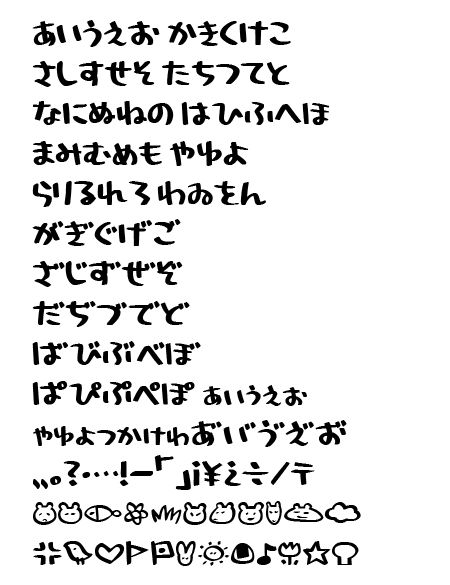 あいうえお かきくけこ
さしすせそ たちつてと
なにぬねの はひふへほ
まみむめも やゆよ
らりるれろ わゐをん
がぎぐげご
ざじずぜぞ
だぢづでど
ばびぶべぼ
ぱぴぷぺぽ ぁぃぅぇぉ
ゃゅょっヵヶゎあ゙い゙ゔえ゙お゙
、。?・…!ー「」i¥え÷/〒